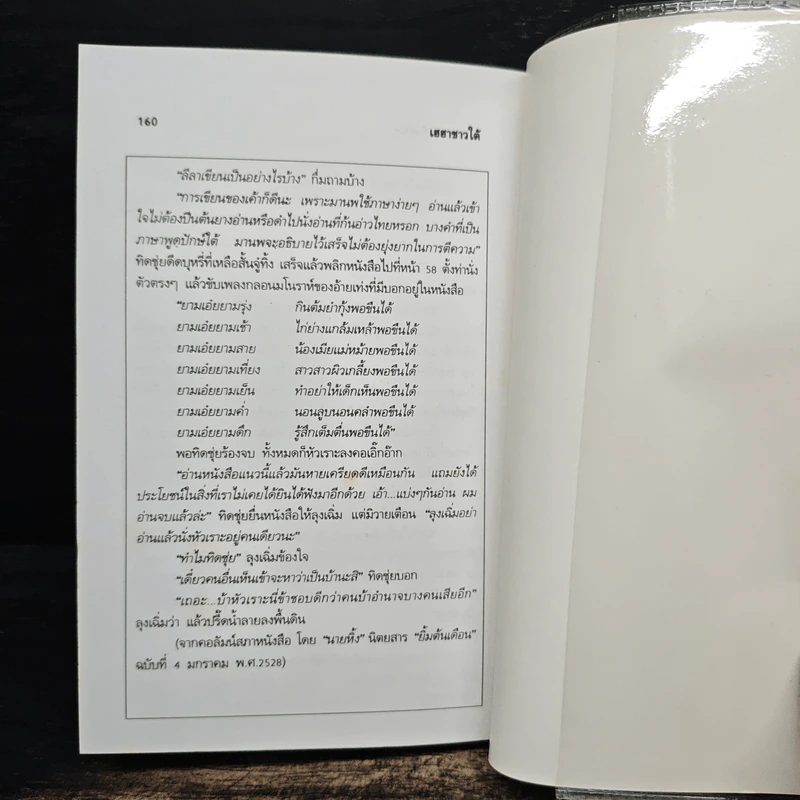 160
เฮฮาชาวใต้
"ลีลาเขียนเป็นอย่างไรบ้าง" กึ๋มถามบ้าง
"การเขียนของเค้าก็ดีนะ เพราะมานพใช้ภาษาง่ายๆ อ่านแล้วเข้า
ใจไม่ต้องปีนต้นยางอ่านหรือดำไปนั่งอ่านที่ก้นอ่าวไทยหรอก บางคำที่เป็น
ภาษาพูดปักษ์ใต้ มานพจะอธิบายไว้เสร็จไม่ต้องยุ่งยากในการตีความ"
ทิดชุ่ยดีดบุหรี่ที่เหลือสั้นจู๋ทิ้ง เสร็จแล้วพลิกหนังสือไปที่หน้า 58 ตั้งท่านั่ง
ตัวตรงๆ แล้วขับเพลงกลอนมโนราห์ของอ้ายเท่งที่มีบอกอยู่ในหนังสือ
"ยามเอ๋ยยามรุ่ง กินต้มยำกุ้งพอขืนได้
ยามเอ๋ยยามเช้า ไก่ย่างแกล้มเหล้าพอขืนได้
ยามเอ๋ยยามสาย น้องเมียแม่หม้ายพอขืนได้
ยามเอ๋ยยามเที่ยง สาวสาวผิวเกลี้ยงพอขืนได้
ยามเอ๋ยยามเย็น ทำอย่าให้เด็กเห็นพอขืนได้
ยามเอ๋ยยามค่ำ นอนลูบนอนคลำพอขืนได้
ยามเอ๋ยยามดึก รู้สึกเต็มตื่นพอขืนได้"
พอทิดชุ่ยร้องจบ ทั้งหมดก็หัวเราะลงคอเอิ๊กอ๊าก
"อ่านหนังสือแนวนี้แล้วมันหายเครียดดีเหมือนกัน แถมยังได้
ประโยชน์ในสิ่งที่เราไม่เคยได้ยินได้ฟังมาอีกด้วย เอ้า...แบ่งๆกันอ่าน ผม
อ่านจบแล้วล่ะ" ทิดชุ่ยยื่นหนังสือให้ลุงเฉิ่ม แต่มิวายเตือน "ลุงเฉิ่มอย่า
อ่านแล้วนั่งหัวเราะอยู่คนเดียวนะ"
"ทำไมทิดชุ่ย" ลุงเฉิ่มข้องใจ
"เดี๋ยวคนอื่นเห็นเข้าจะหาว่าเป็นบ้านะสิ" ทิดชุ่ยบอก
"เถอะ...บ้าหัวเราะนี่ข้าชอบดีกว่าคนบ้าอำนาจบางคนเสียอีก"
ลุงเฉิ่มว่า แล้วปรี๊ดน้ำลายลงพื้นดิน
(จากคอลัมน์สภาหนังสือ โดย "นายหึ้ง" นิตยสาร "ยิ้มต้นเดือน"
ฉบับที่ 4 มกราคม พ.ศ.2528)